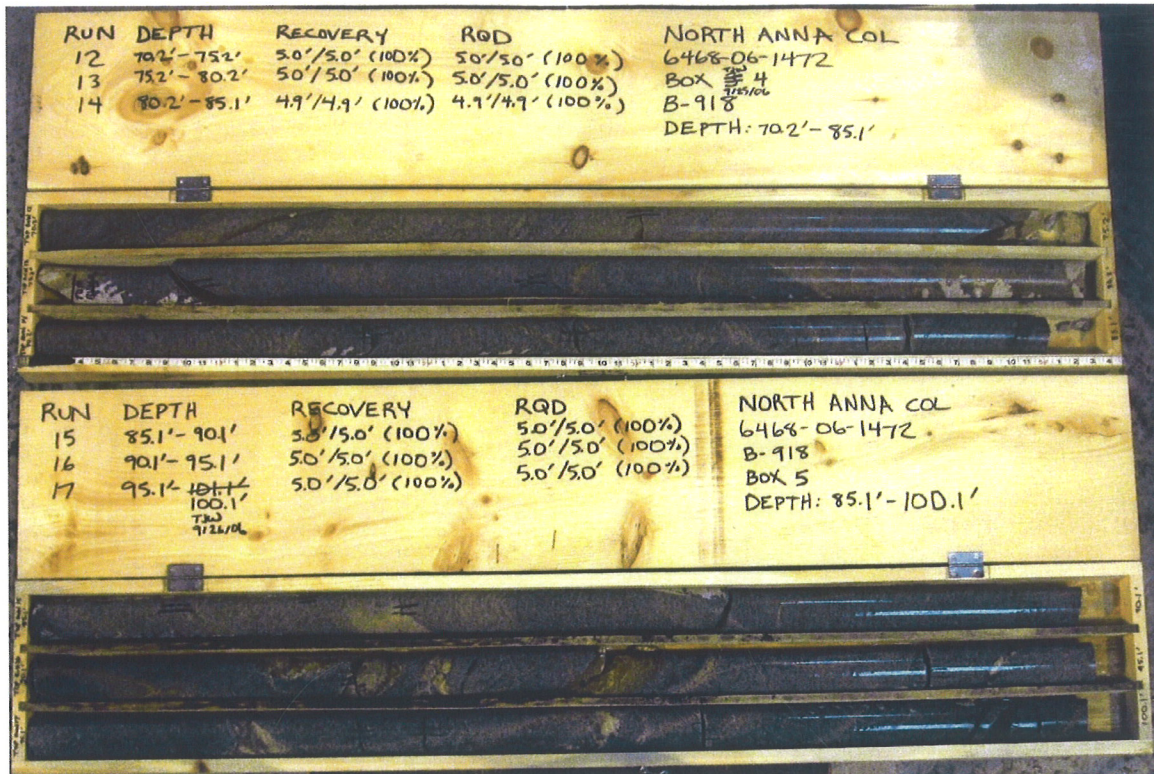 RUN DEPTH RECOVERY RQD
12 70.2'-75.2' 5.0'/5.0' (100%) 5.0'/5.0' (100%)
13 75.2'-80.2' 5.0'/5.0' (100%) 5.0'/5.0' (100%)
14 80.2'-85.1' 4.9'/4.9' (100%) 4.9'/4.9' (100%)
NORTH ANNA COL
6468-06-1472
BOX 4
TJW
9/25/06
B-918
DEPTH: 70.2'-85.1'
75.2'
85.1'
RUN DEPTH RECOVERY RQD
15 85.1'-90.1' 5.0'/5.0' (100%) 5.0'/5.0' (100%)
16 90.1'-95.1' 5.0'/5.0' (100%) 5.0'/5.0' (100%)
17 95.1'-101.1' 5.0'/5.0' (100%) 5.0'/5.0' (100%)
100.1'
TJW
9/26/06
NORTH ANNA COL
6468-06-1472
B-918
BOX 5
DEPTH: 85.1'-100.1'
90.1'
95.1'
100.1'